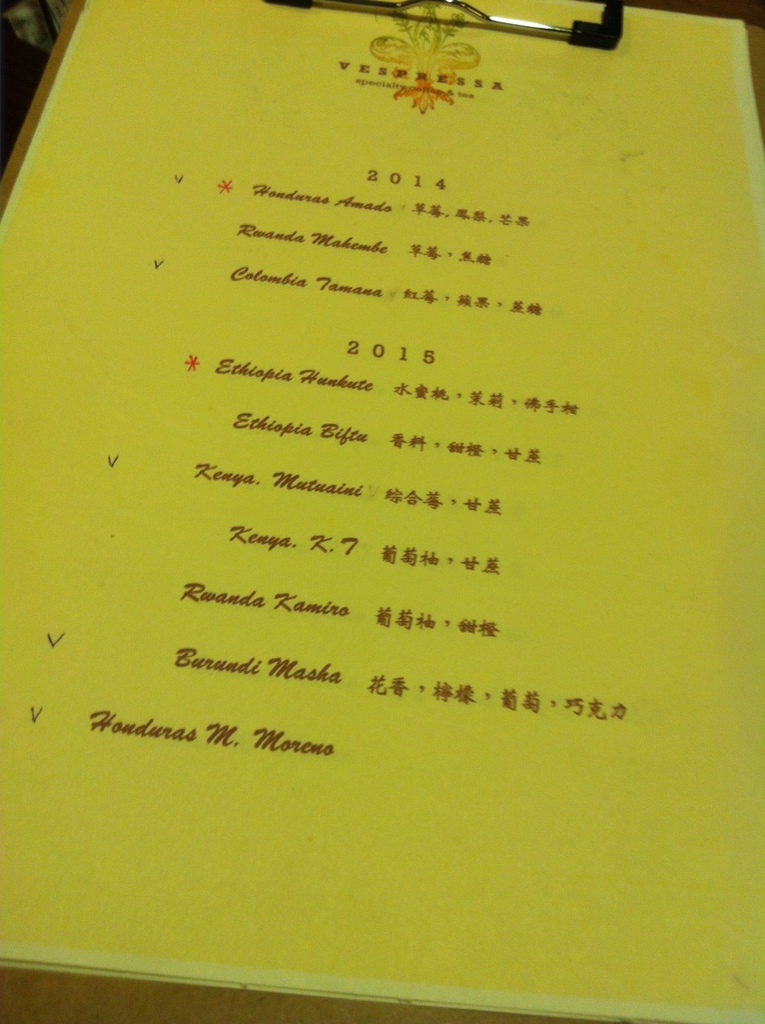 VESPRESSA
specialty coffee & tea
2014
✓ * Honduras Amado 草莓, 鳳梨, 芒果
Rwanda Mahembe 草莓，焦糖
✓ Colombia Tamana 紅莓，蘋果，蔗糖
2015
* Ethiopia Hunkute 水蜜桃，茉莉，佛手柑
Ethiopia Biftu 香料，甜橙，甘蔗
✓ Kenya. Mutuaini 綜合莓，甘蔗
Kenya. K.T 葡萄柚，甘蔗
Rwanda Kamiro 葡萄柚，甜橙
✓ Burundi Masha 花香，檸檬，葡萄，巧克力
✓ Honduras M. Moreno